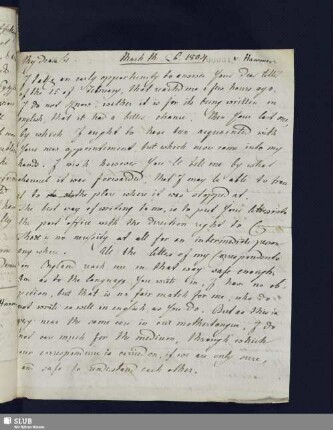 My Dear Sr
March th. 6. 1804.
Hannover
I take an early opportunity to answer Your dear letter
of the 15 of February, that reached me a few hours ago.
I do not know, wether it is for its being written in
english, that it had a better chance. Then Your last one,
by which I ought to have been acquainted with
Your new appointment, but which never came into my
hands. I wish however You'll tell me by what
channel it was forwarded, that I may be able to trace
it to the place where it was stopped at.
The best way of writing to me, is to put Your letters into
the post office with the direction right to
There is no necessity at all for an intermediate person
any where. All the letters of my Correspondents
in England reach me in that way safe enough.
As to the language You write in, I have no ob-
jection, but that is no fair match for me, who do
not write so well in english as You do. But as there is
very near the same case in our mothertongue, I do
not care much for the medium, through which
our correspondence is carried on, if we are only sure,
and safe to understand each other.
SLUB